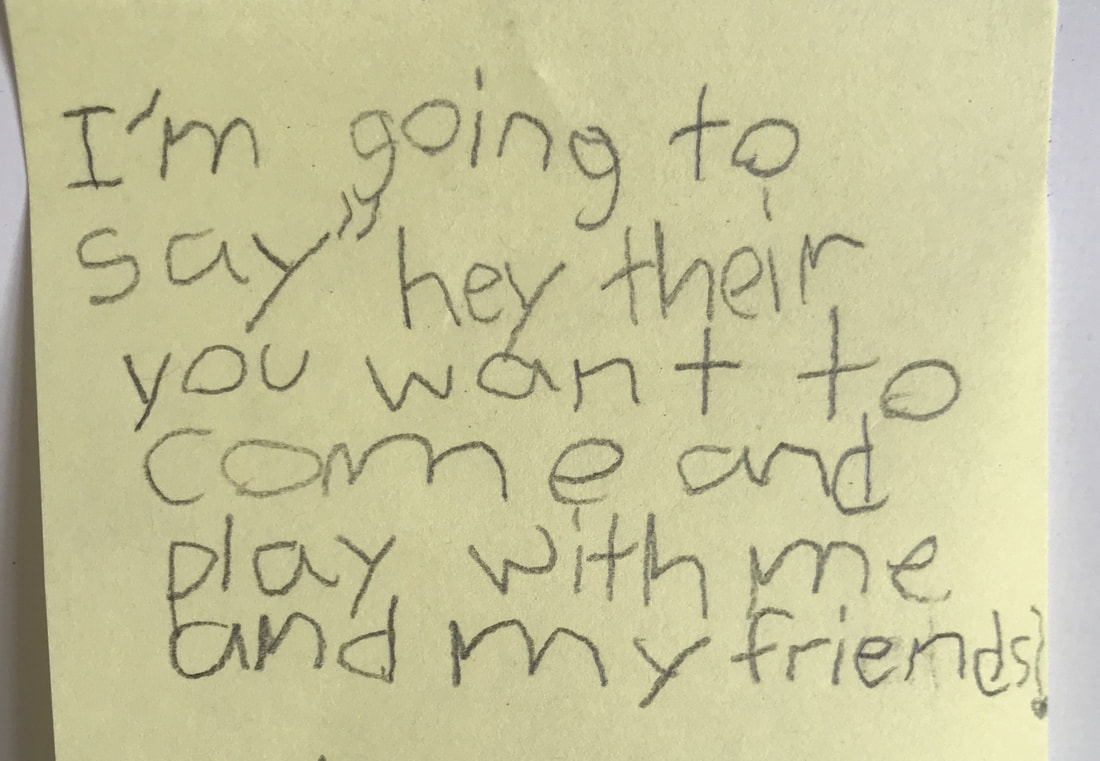 I'm going to
say" hey their
you want to
come and
play with me
and my friends?